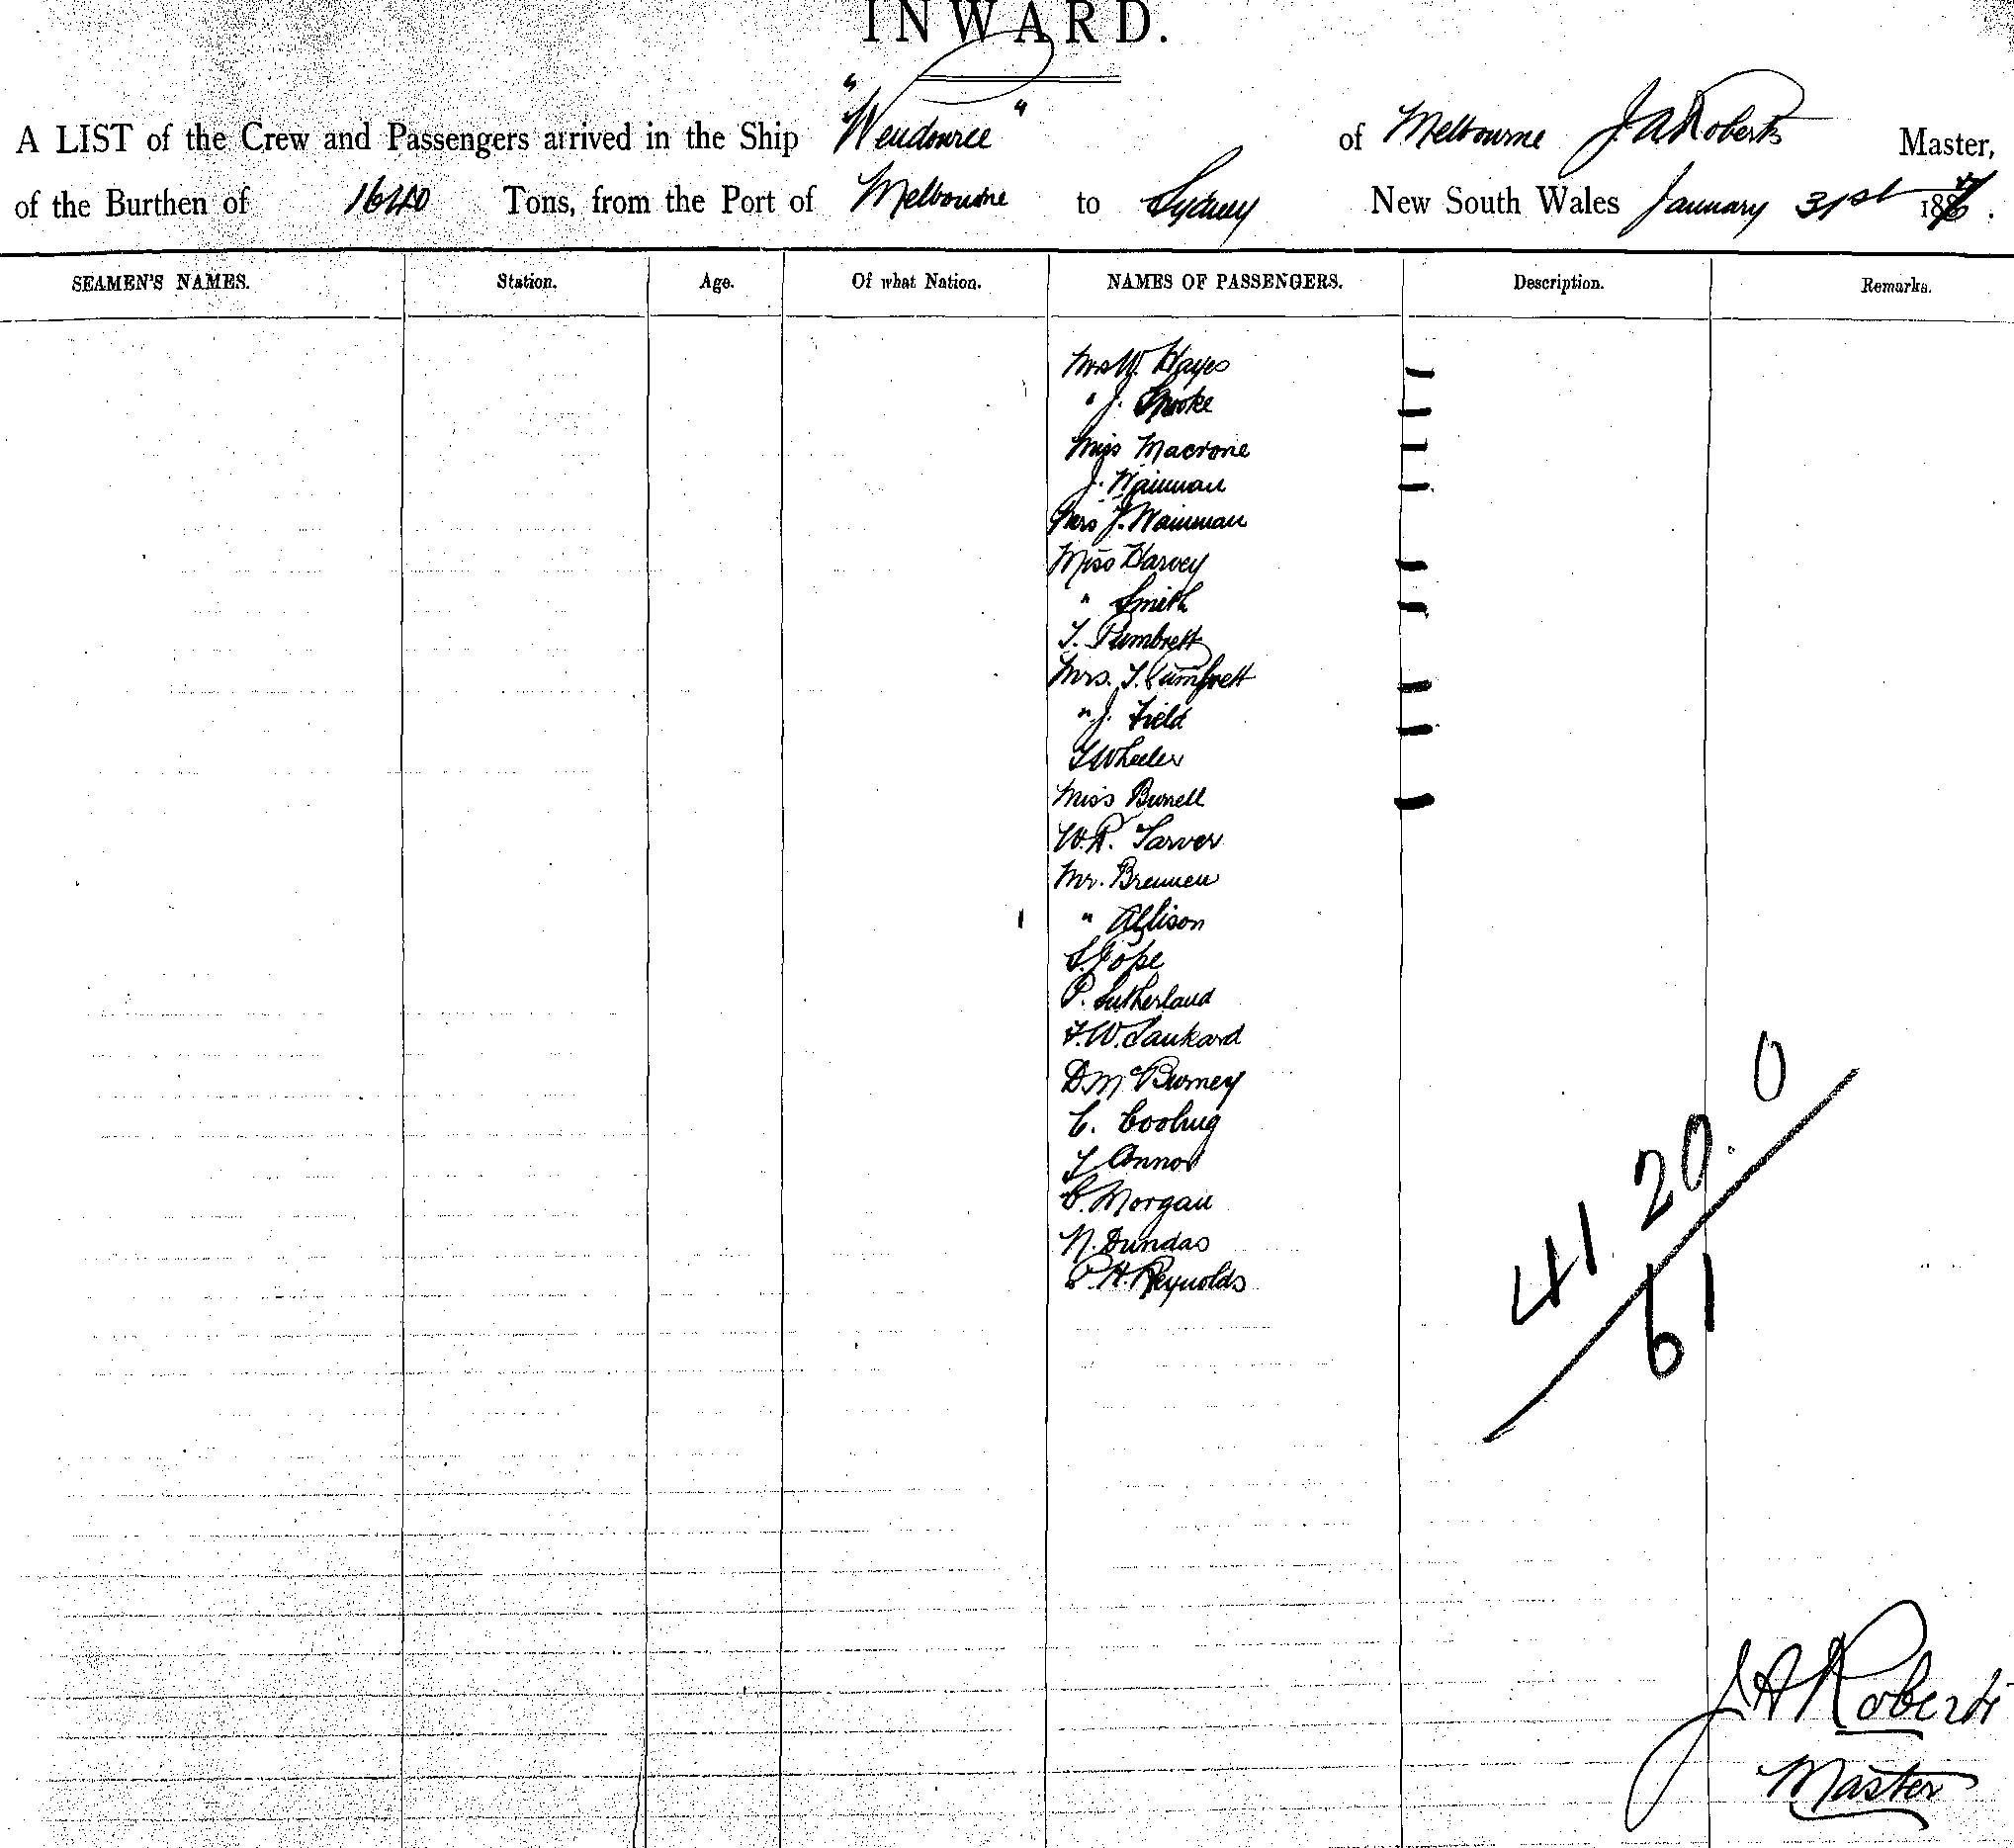 INWARD.
A LIST of the Crew and Passengers arrived in the Ship "Wendouree" of Melbourne J. A Roberts Master,
of the Burthen of 1640 Tons, from the Port of Melbourne to Sydney New South Wales January 31st 1887.
SEAMEN'S NAMES. Station. Age. Of what Nation. NAMES OF PASSENGERS. Description. Remarks.
Mrs W. Hayes
" J. Spooke
Miss Macrone
J. Wainman
Mrs J. Wainman
Miss Harvey
" Smith
T. Pumbrett
Mrs. T. Pumbrett
" J. Field
T Wheeler
Miss Bunell
W.R. Tarver
Mr. Brennen
" Allison
S. Pope
P. Sutherland
F.W. Tankard
D. McBurney
C. Cooling
T Connor
C. Morgan
N. Dundas
P. H. Reynolds
41. 20. 0
61
J A Roberts
Master